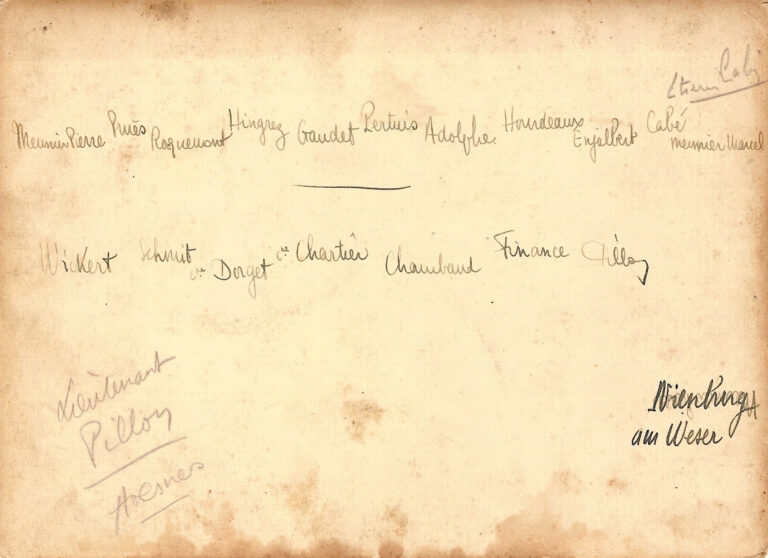 Cabé
Meunier Pierre Pruès Roquemont Hingrez Gaudet Pertuis Adolphe Hourdeaux Enjalbert Cabé Meunier Marcel
Wickert Schmit cne Dorget cne Chartier Chambaud Finance Pilloy
Lieutenant
Pilloy
Nienburg
am Weser